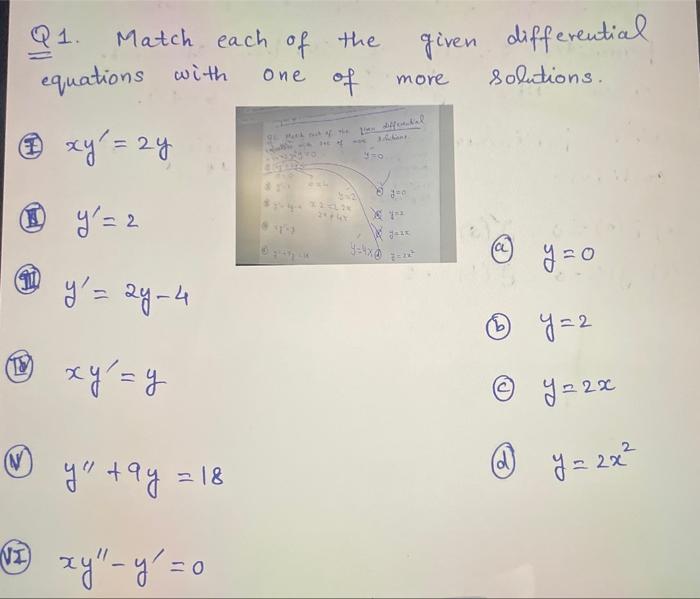 Q1. Match each of the given differential
equations with one of more solutions.
I xy′ = 2y
II y′ = 2
III y′ = 2y-4
IV xy′ = y
V y″ + 9y = 18
VI xy″ - y′ = 0
a y = 0
b y = 2
c y = 2x
d y = 2x²
given differential
y′=0
y=0
y=2
y=2x
y=2x²